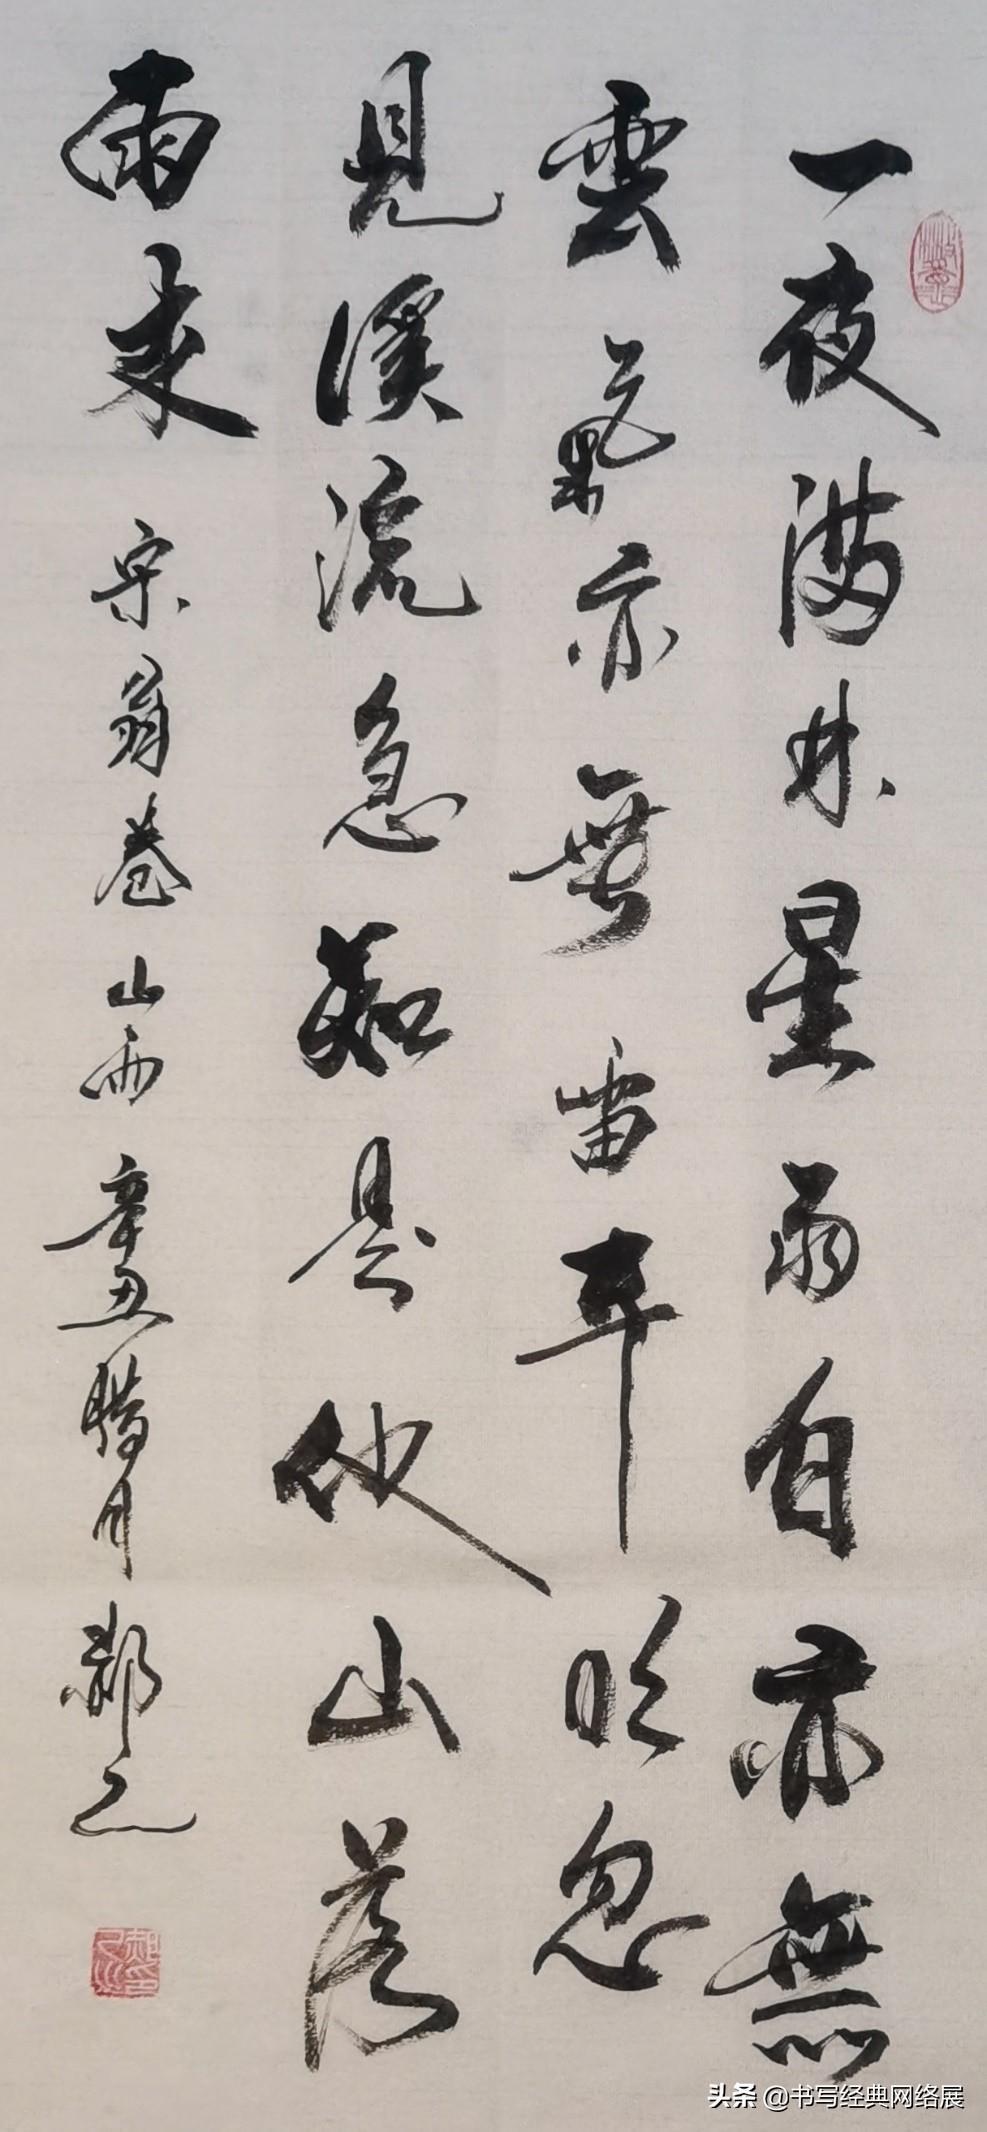 一夜满林星雨白亦無
雲氣亦無雷平明忽
見溪流急知是他山落
雨来 宋翁卷山雨 辛丑臘月郝之
头条 @书写经典网络展